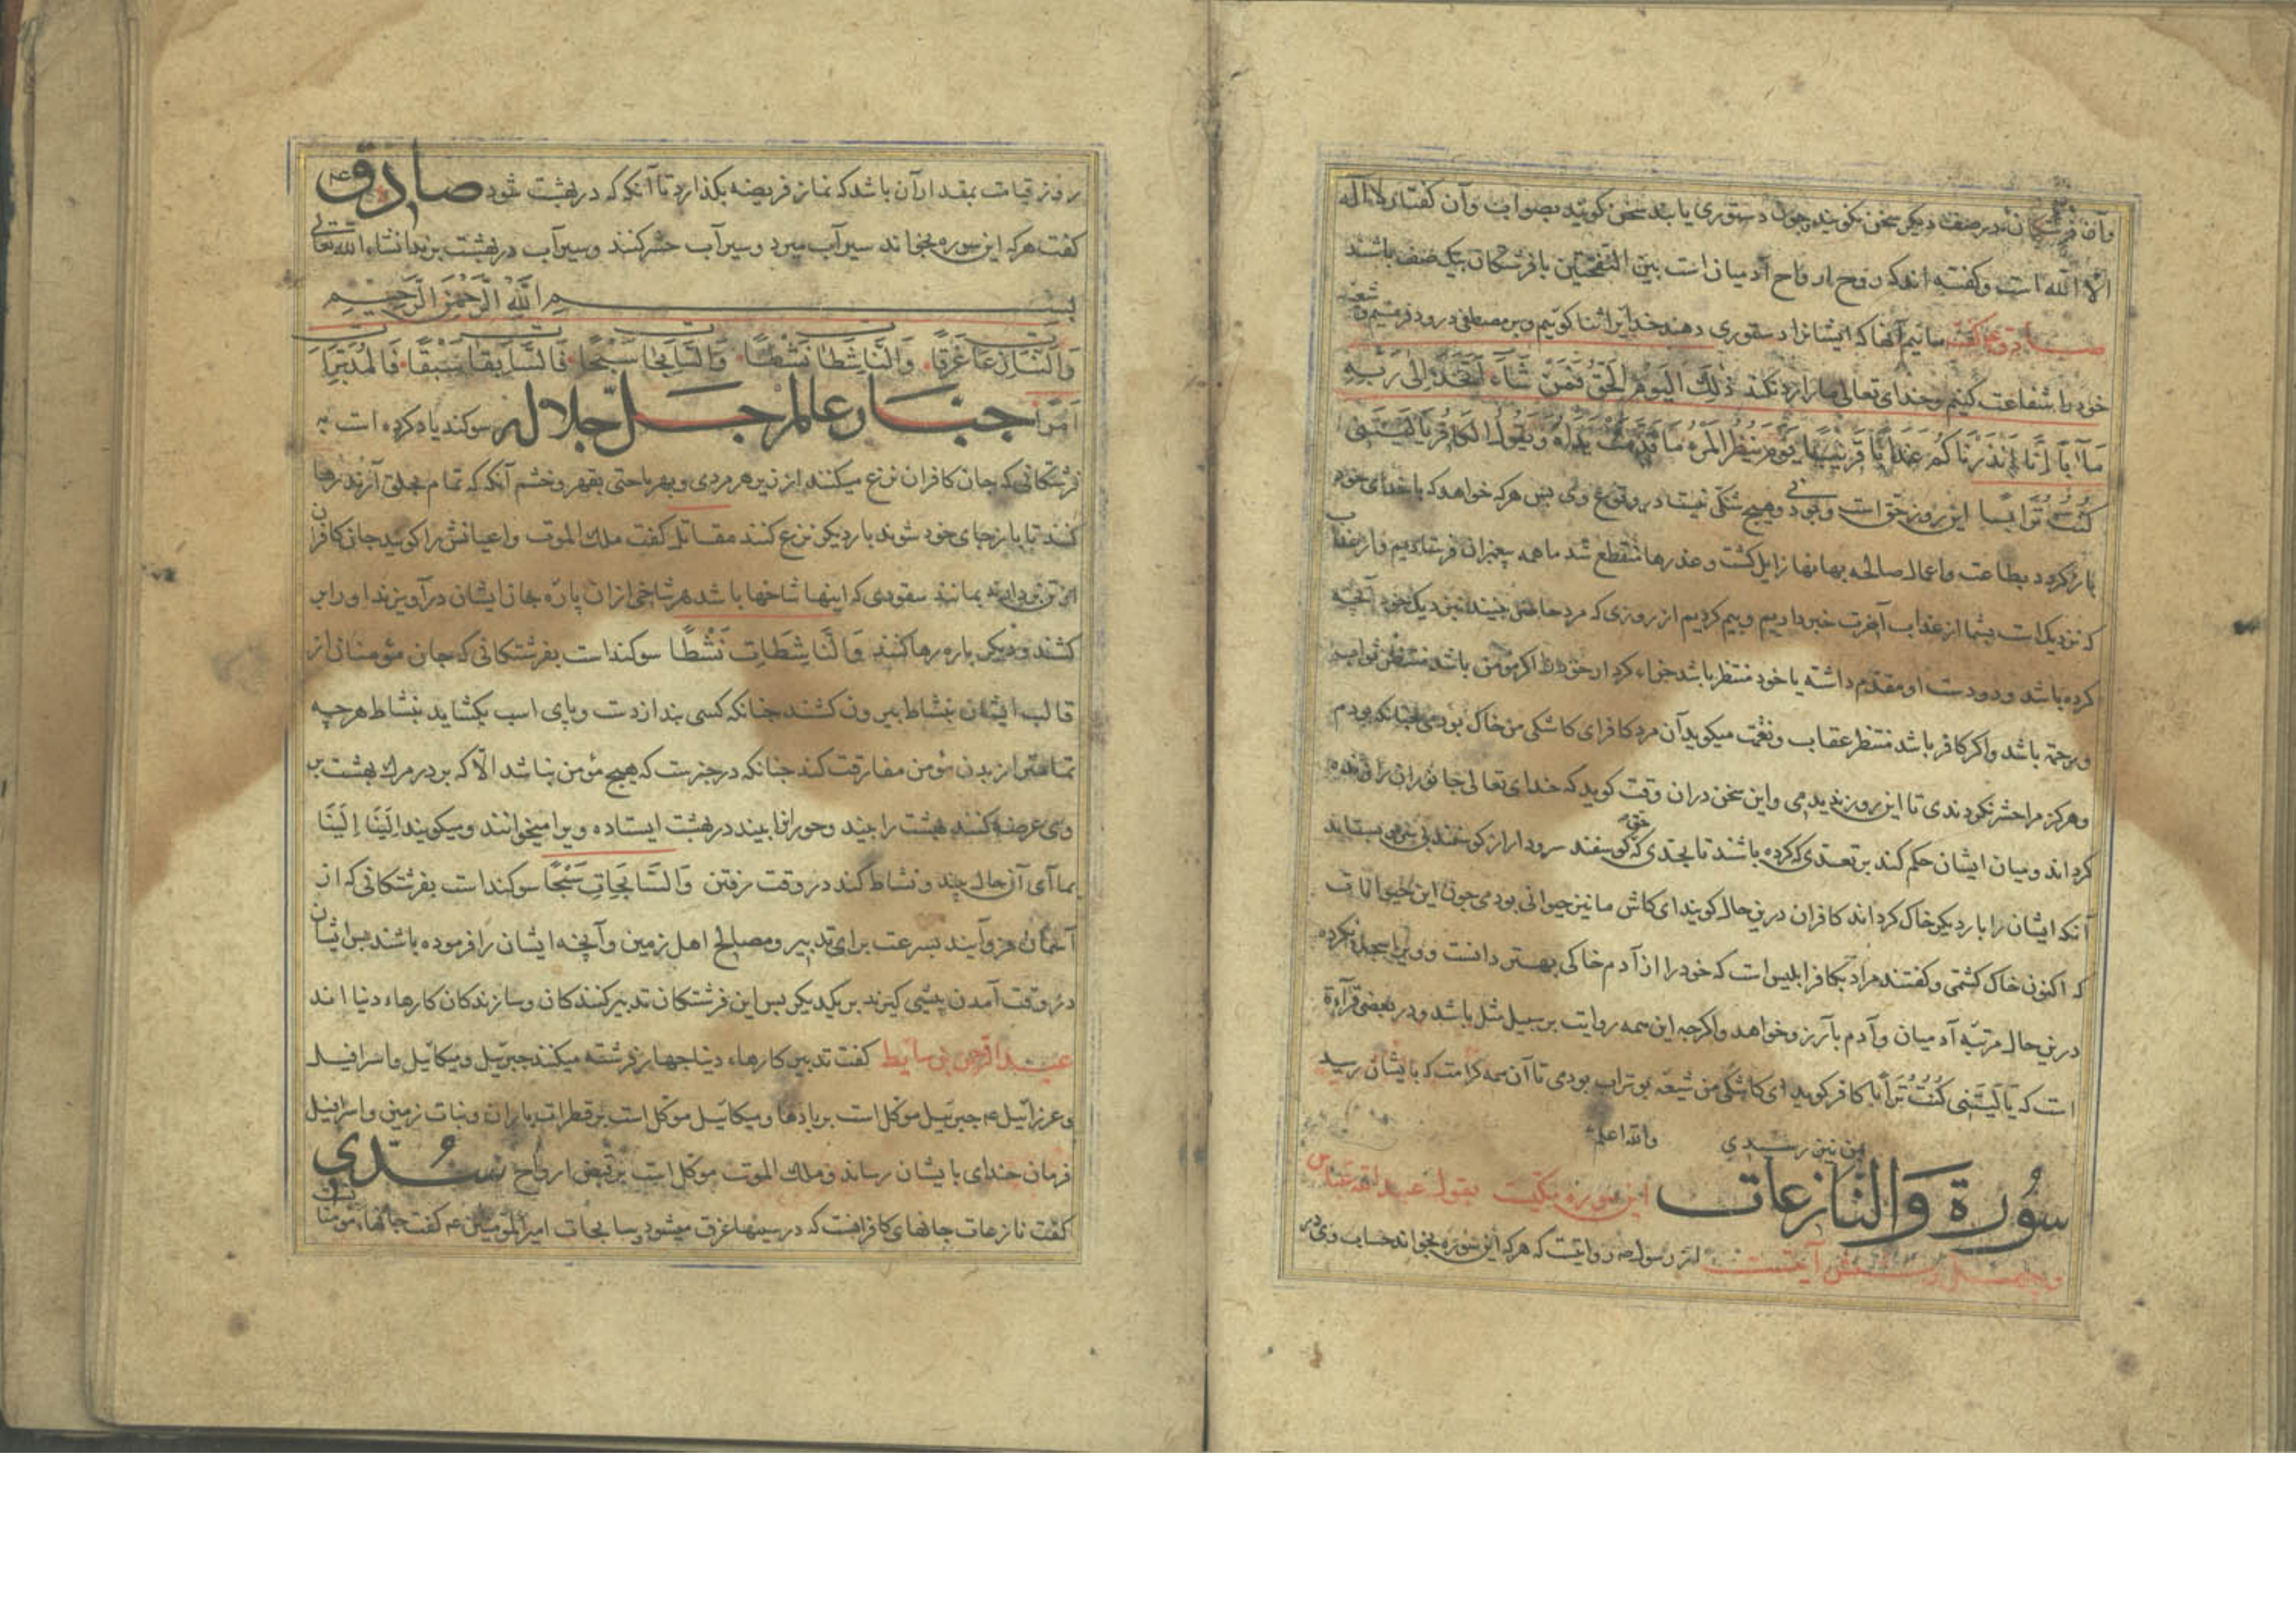 وآن فرشتکان در صف دیکر سخن نکویند وچون دستوری یابند سخن کویند بصواب وآن کفتار لا اله
الا الله است وکفته اند که روح ارواح آدمیان است بین النفختین با فرشتکان بیک صف باشند
صادق ع کفت مائیم آنها که ایشانرا دستوری دهند خدایرا ثنا کوییم وبر مصطفی درود فرستیم و شیعه
خود را شفاعت کنیم وخدای تعالی ما را رد نکند ذٰلِكَ الْيَوْمُ الْحَقُّ فَمَنْ شَاءَ اتَّخَذَ اِلٰى رَبِّهِ
مَآبًا اِنَّا اَنْذَرْنَاكُمْ عَذَابًا قَرِيبًا يَوْمَ يَنْظُرُ الْمَرْءُ مَا قَدَّمَتْ يَدَاهُ وَيَقُولُ الْكَافِرُ يَا لَيْتَنِي
كُنْتُ تُرَابًا این روز حق است وبودنی وهیچ شکی نیست در وقوع وی پس هر که خواهد که با خدای خود
باز کردد بطاعت واعمال صالحه بهانها زایل کشت وعذرها منقطع شد ما همه پیغمبران فرستادیم واز عذاب
که نزدیک است بشما از عذاب آخرت خبر دادیم وبیم کردیم از روزی که مرد حاضر بیند نزدیک خود آنچه
کرده باشد ودو دست او مقدم داشته یا خود منتظر باشد جزاء کردار خود را اکر مومن باشد منتظر ثواب
ورحمة باشد واکر کافر باشد منتظر عقاب ونقمت میکوید آن مرد کافر ای کاشکی من خاک بودمی چنانکه بودم
وهرکز مرا حشر نکردندی تا این روز ندیدمی واین سخن دران وقت کوید که خدای تعالی جانوران را زنده
کرداند ومیان ایشان حکم کند بر تعدی که کرده باشند تا بحدی که حق کوسفند سرودار از کوسفند بی سرو بستاند
آنکه ایشان را بار دیکر خاک کرداند کافران درین حال کویند ای کاش ما نیز حیوانی بودمی چون این حیوانات
که اکنون خاک کشتمی وکفتند مراد بکافر ابلیس است که خود را از آدم خاکی بهتر دانست وویرا سجده نکرده
درین حال مرتبه آدمیان وآدم بآرزو خواهد واکرچه این همه روایت بر سبیل مثل باشد ودر بعضی قرآءة
است که يَا لَيْتَنِي كُنْتُ تُرَابًا کافر کوید ای کاشکی من شیعه بوتراب بودمی تا آن همه کرامت که بایشان رسید
بمن نیز رسیدی والله اعلم
سُورة وَالنازعات این سوره مکیست بقول عبد الله عباس
وچهل وشش آیتست از رسول ص روایتست که هر که این سوره بخواند حساب وی در
روز قیامت بمقدار آن باشد که نماز فریضه بکذارد تا آنکه که در بهشت شود صادق ع
کفت هر که این سوره بخواند سیرآب میرد وسیرآب حشر کنند وسیرآب در بهشت برند انشاء الله تعالی
بسم الله الرَّحْمٰنِ الرَّحِيمِ
وَالنَّازِعَاتِ غَرْقًا وَالنَّاشِطَاتِ نَشْطًا وَالسَّابِحَاتِ سَبْحًا فَالسَّابِقَاتِ سَبْقًا فَالْمُدَبِّرَاتِ
اَمْرًا جناب عالم جل جلاله سوکند یاد کرده است به
فرشتکانی که جان کافران نزع میکنند از تن هر مردی وبهر باختی بقهر وخشم آنکه که تمام بحلق آرند رها
کنند تا باز جای خود شوند بار دیکر نزع کنند مقاتل کفت ملك الموت واعیانش را کویند جان کافران
از تن بردارند بمانند سفودی که اینها شاخها باشد هر شاخی ازان پاره جان ایشان درآویزند اورا بر
کشند ودیکر باره رها کنند وَالنَّاشِطَاتِ نَشْطًا سوکند است بفرشتکانی که جان مؤمنان از
قالب ایشان بنشاط بیرون کشند چنانکه کسی بند از دست وپای اسب بکشاید بنشاط هرچه
تمامتر از بدن مؤمن مفارقت کند چنانکه در خبرست که هیچ مؤمن نباشد الا که بر در مرك بهشت بر
وی عرضه کنند بهشت را بیند وحورانرا بیند در بهشت ایستاده ویرا میخوانند ومیکویند اِلَيْنَا اِلَيْنَا
بما آی آن حال بیند ونشاط کند در وقت رفتن وَالسَّابِحَاتِ سَبْحًا سوکند است بفرشتکانی که از
آسمان فرو آیند بسرعت برای تدبیر ومصالح اهل زمین وآنچه ایشان را فرموده باشند پس ایشان
در وقت آمدن پیشی کیرند بر یکدیکر پس این فرشتکان تدبیر کنندکان وسازندکان کارهاء دنیا اند
عبد الرحمن بن سابط کفت تدبیر کارهاء دنیا چهار فرشته میکنند جبرئیل ومیکائیل واسرافیل
وعزرائیل ع جبرئیل موکل است بر بادها ومیکائیل موکل است بر قطرات باران ونبات زمین واسرافیل
فرمان خدای بایشان رساند وملك الموت موکل است بر قبض ارواح سُدّی
کفت نازعات جانهای کافرانست که در سینها غرق میشود وسابحات امیر المؤمنین ع کفت جانهاء مؤمنان